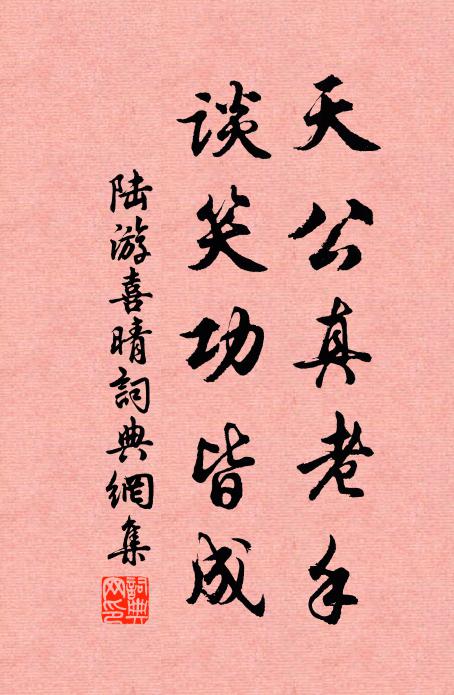 天公真老手
谈笑功皆成
陆游喜晴詞典網集
詞典網印